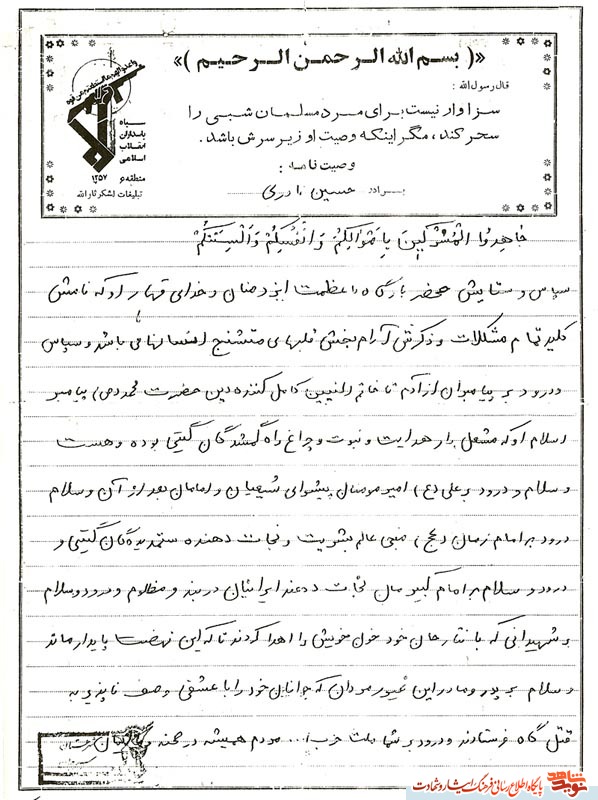 «( بسم الله الرحمن الرحیم )»
قال رسول الله :
سزاوار نیست برای مرد مسلمان شبی را
سحر کند ، مگر اینکه وصیت او زیر سرش باشد .
وصیت نامه :
برادر حسین نادری
سپاه
پاسداران
انقلاب
اسلامی
۱۳۵۷
منطقه ۶
تبلیغات لشکر ثارالله
جَاهِدُوا الْمُشْرِکینَ بِاَمْوالِکُمْ وَ اَنْفُسِکُمْ وَ اَلْسِنَتِکُمْ
سپاس و ستایش محضر بارگاه با عظمت ایزد منان و خدای قهار او که نامش
کلید تمام مشکلات و ذکرش آرام بخش قلبهای متشنج انسانها می باشد و سپاس
و درود بر پیامبران از آدم تا خاتم النبیین کامل کننده دین حضرت محمد (ص) پیامبر
اسلام او که مشعل دار هدایت و نبوت و چراغ راه گمشدگان گیتی بوده و هست
و سلام و درود بر علی (ع) امیر مومنان پیشوای شیعیان و امامان بعد از آن و سلام
درود بر امام زمان (عج) منجی عالم بشریت و نجات دهنده ستمدیدگان گیتی و
درود و سلام بر امام کبیرمان نجات دهنده ایرانیان در بند و مظلوم و درود و سلام
بر شهیدانی که با نثار جان خود خون خویش را اهدا کردند تا که این نهضت پایدار ماند
و سلام بر پدر و مادر این غیور مردان که جوانان خود را با عشقی وصف ناپذیر به
قتل گاه فرستادند و درود بر شما ملت حزب ا... مردم همیشه در صحنه
نوید شاهد
پایگاه اطلاع رسانی فرهنگ ایثار و شهادت